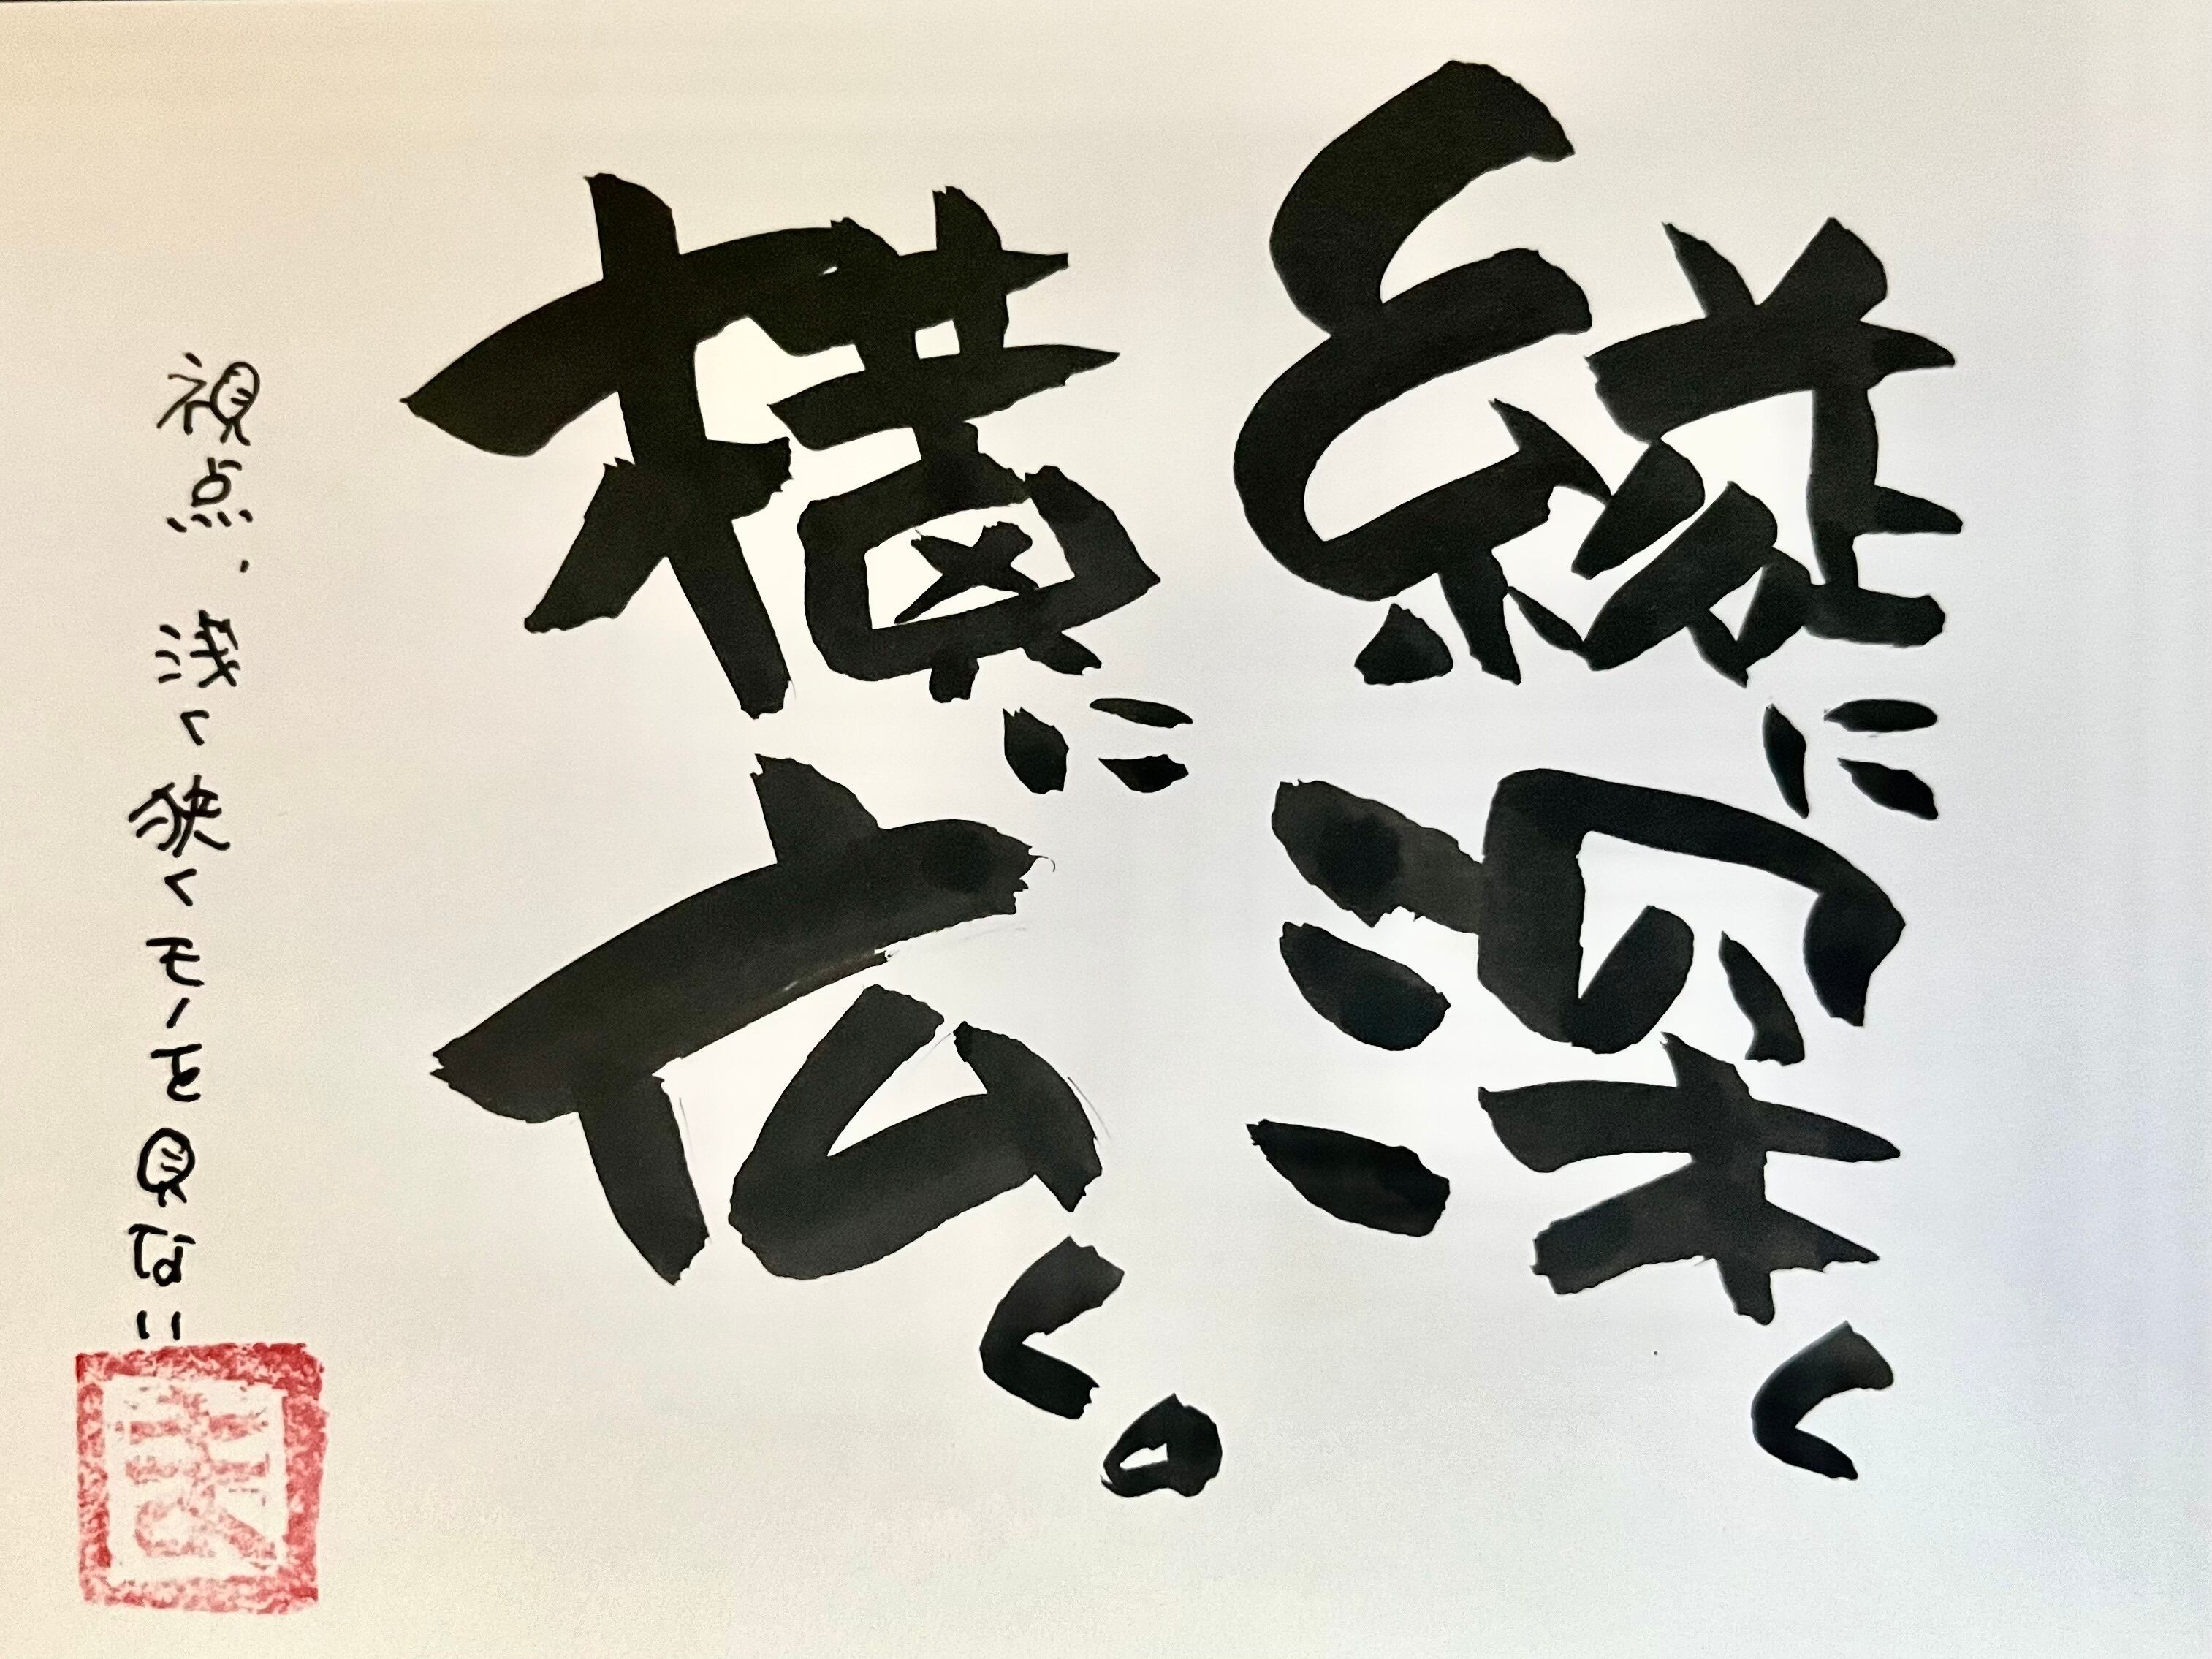 縦に深く
横に広く。
視点、浅く狭くモノを見ない